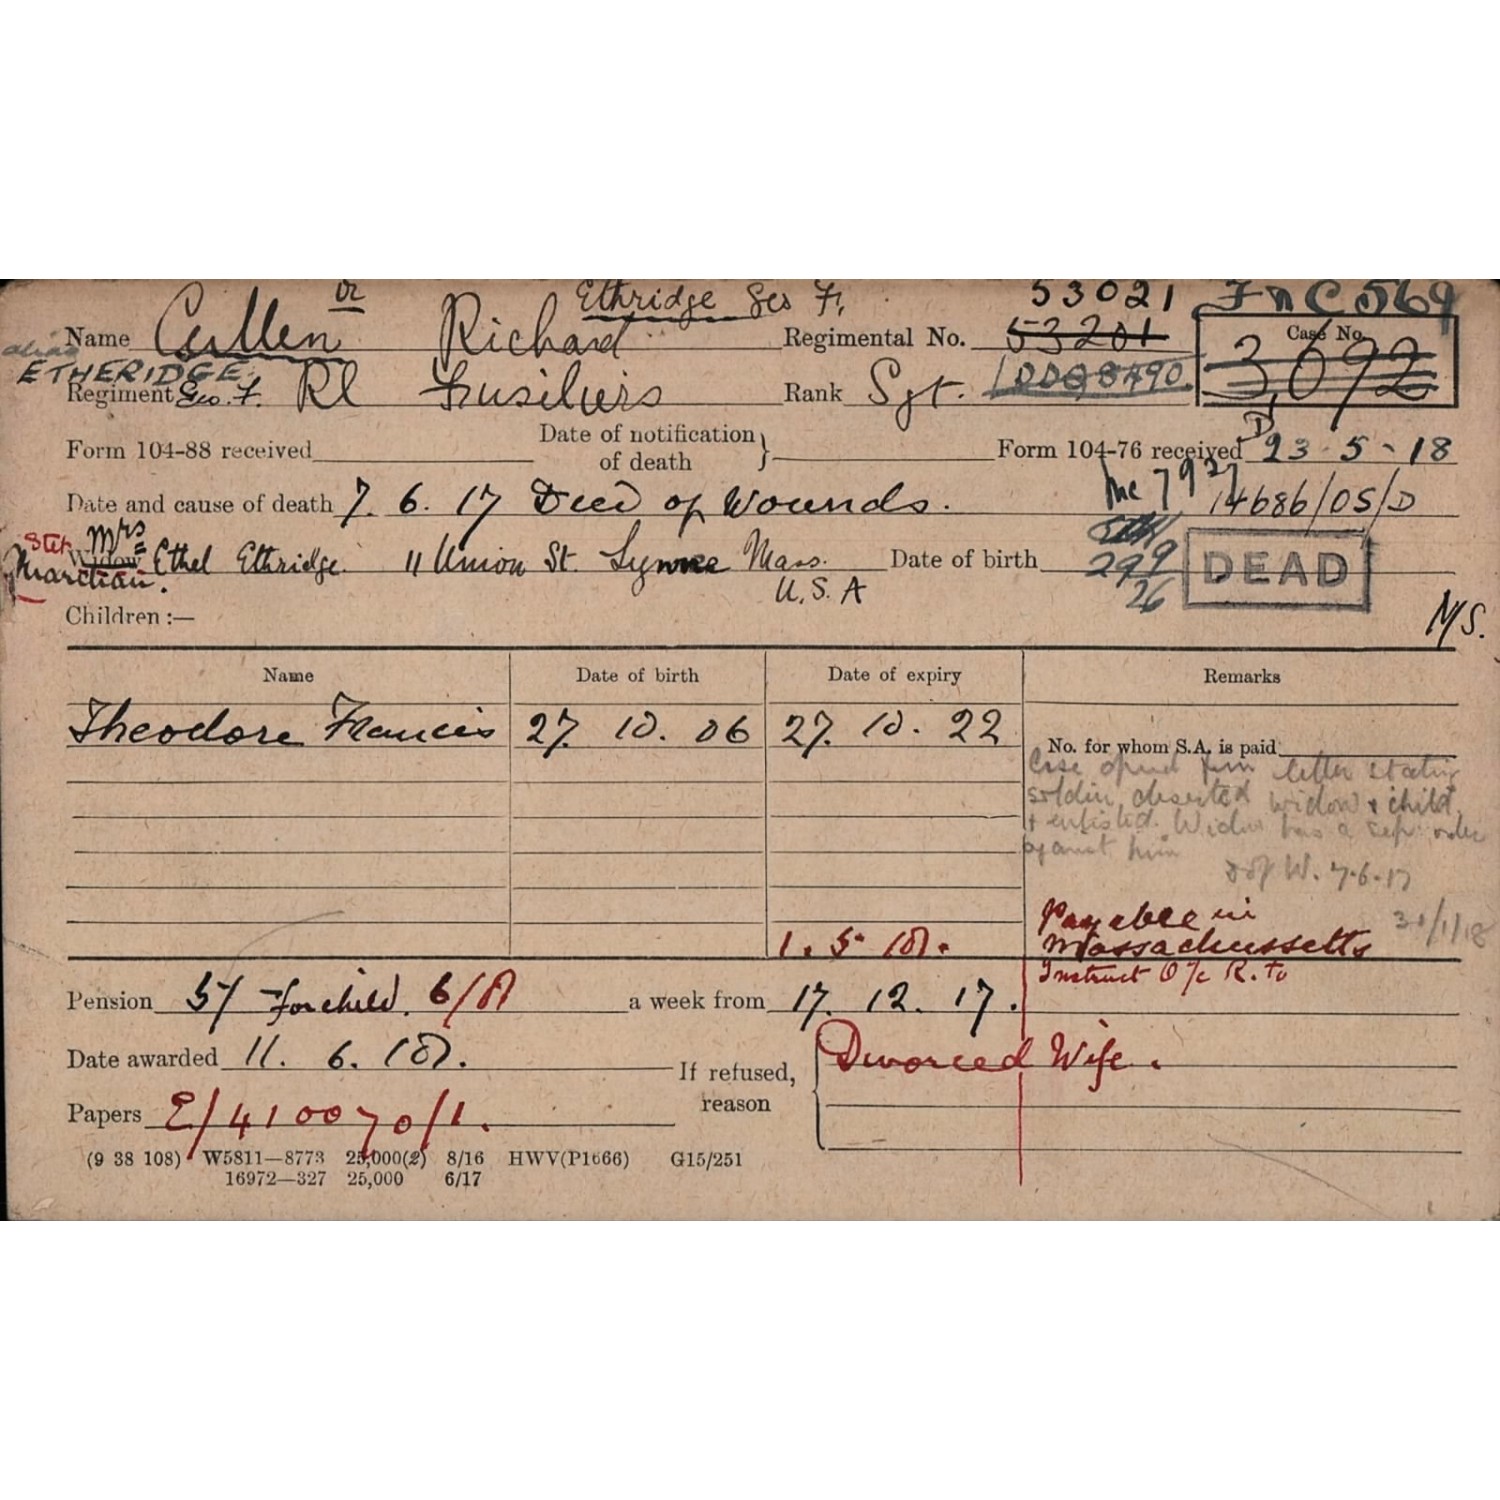 or Ethridge Geo F. 53021 F n C 569
Name Cullen Richard Regimental No. 53201 Case No. 3,092
alias ETHERIDGE Geo. F.
Regiment Rl Fusiliers Rank Sgt.
Form 104-88 received Date of notification of death Form 104-76 received 23-5-18
Date and cause of death 7. 6. 17 Died of Wounds. 14686/OS/D
Mrs
Widow Ethel Ethridge. 11 Union St. Lynne Mass. Date of birth DEAD
U.S.A
Children :— M/S.
Name Date of birth Date of expiry Remarks
Theodore Francis 27. 10. 06 27. 10. 22
No. for whom S.A. is paid
Case opened from letter stating
soldier deserted widow & child
& enlisted. Widow has a sep. order
against him
D of W. 7-6-17
31/1/18
Payable in
1. 5. 18. Massachussetts
Instruct O/c R. to
Pension 5/ for child. 6/8 a week from 17. 12. 17.
Date awarded 11. 6. 18. If refused, reason Divorced Wife.
Papers E/410070/1.
(9 38 108) W5811—8773 25,000(2) 8/16 HWV(P1666) G15/251
16972—327 25,000 6/17